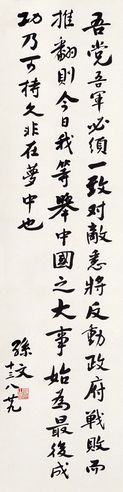 吾党吾軍必須一致对敵悉將反動政府戰敗而
推翻則今日我等舉中國之大事始為最後成
功乃可持久非在夢中也
孫文
十三八廿九